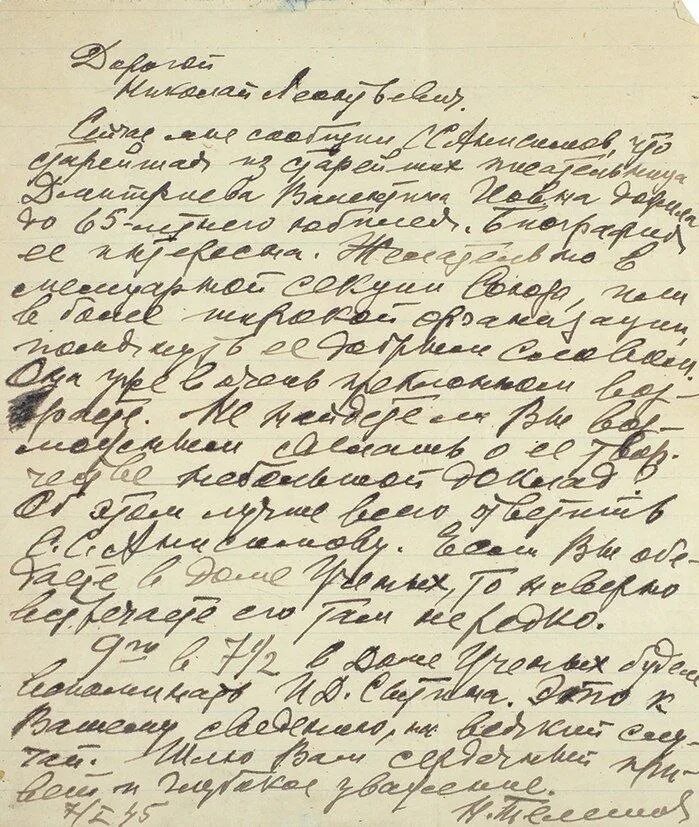 Дорогой
Николай Леонтьевич.
Сейчас мне сообщил С.С. Анисимов, что
старейшая из старейших писательница
Дмитриева Валентина Иовна дожила
до 65-летнего юбилея. Биография
ее интересна. Желательно в
мемуарной секции Союза, или
в более широкой организации,
помянуть ее добрым словом.
Она уже в очень преклонном воз-
расте. Не найдете ли Вы воз-
можным сделать о ее твор-
честве небольшой доклад?
Об этом лучше всего ответить
С.С. Анисимову. Если Вы обе-
даете в Доме Ученых, то наверно
встречаете его там нередко.
9го в 7 1/2 в Доме Ученых будем
вспоминать И.Д. Сытина. Это к
Вашему сведению, на всякий слу-
чай. Шлю Вам сердечный при-
вет и глубокое уважение.
7/I 45 Н. Телешов